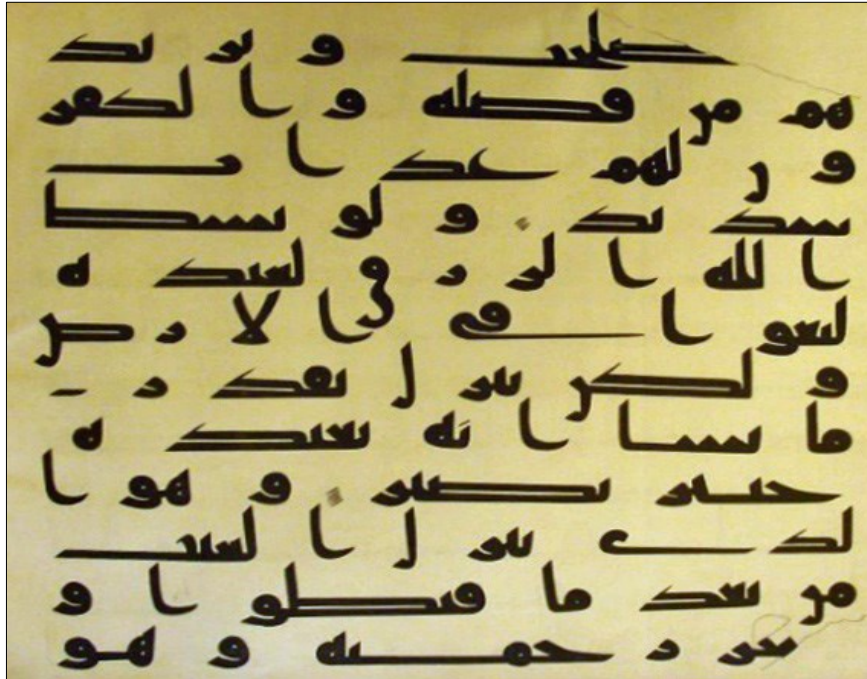 صلحت ويزيد
هم من فضله والكفر
ون لهم عذاب
شديد ولو بسط
الله الرزق لعبده
لبغوا في الارض
ولكن ينزل بقدر
ما يشا انه بعبده
خبير بصير وهو ا
لذي ينزل الغيث
من بعد ما قنطوا و
ينشر رحمته وهو